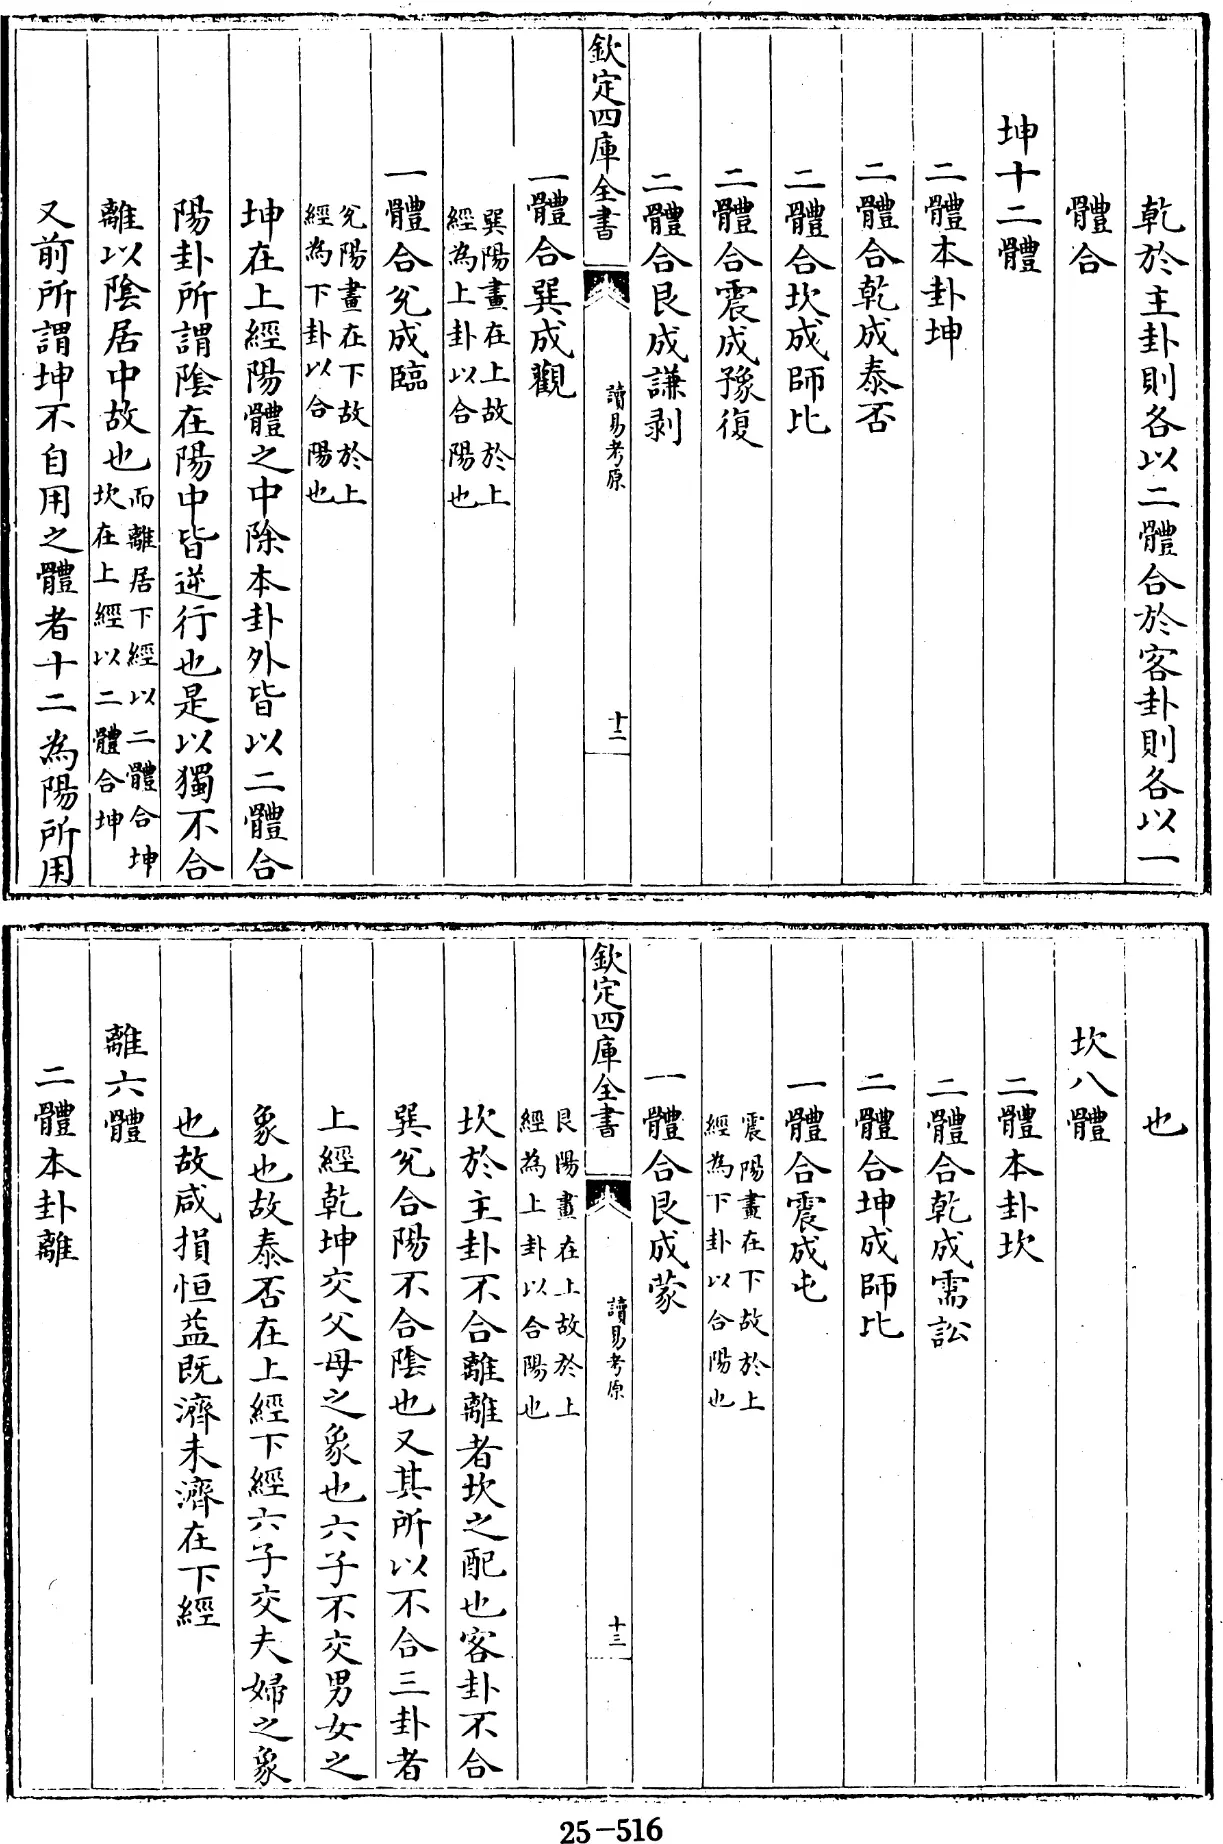 乾於主卦則各以二體合於客卦則各以一
體合
坤十二體
二體本卦坤
二體合乾成泰否
二體合坎成師比
二體合震成豫復
二體合艮成謙剥
欽定四庫全書
讀易考原
十二
一體合巽成觀
巽陽畫在上故於上
經為上卦以合陽也
一體合兊成臨
兊陽畫在下故於上
經為下卦以合陽也
坤在上經陽體之中除本卦外皆以二體合
陽卦所謂陰在陽中皆逆行也是以獨不合
離以陰居中故也
而離居下經以二體合坤
坎在上經以二體合坤
又前所謂坤不自用之體者十二為陽所用
也
坎八體
二體本卦坎
二體合乾成需訟
二體合坤成師比
一體合震成屯
震陽畫在下故於上
經為下卦以合陽也
一體合艮成蒙
欽定四庫全書
讀易考原
十三
艮陽畫在上故於上
經為上卦以合陽也
坎於主卦不合離離者坎之配也客卦不合
巽兊合陽不合陰也又其所以不合三卦者
上經乾坤交父母之象也六子不交男女之
象也故泰否在上經下經六子交夫婦之象
也故咸損恒益既濟未濟在下經
離六體
二體本卦離
25-516